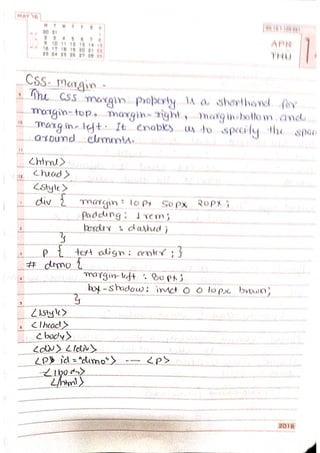 MAY '16
M T W T F S S
30 31 1
2 3 4 5 6 7 8
9 10 11 12 13 14 15
16 17 18 19 20 21 22
23 24 25 26 27 28 29
APR
THU
1
CSS- Margin -
The CSS margin property is a shorthand for
margin-top, margin-right, margin-bottom and
margin-left. It enables us to specify the space
around elements.
<html>
<head>
<style>
div { margin: 10px 50px 20px;
padding: 1rem;
border: dashed;
}
p { text align: center; }
# demo {
margin-left: 80px;
box-shadow: inset 0 0 10px brown;
}
</style>
</head>
<body>
<div> </div>
<p> id="demo"> --- <p>
</body>
</html>
2016